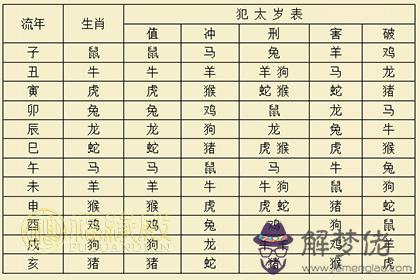 流年 生肖 犯太岁表
值 冲 刑 害 破
子 鼠 鼠 马 兔 羊 鸡
丑 牛 牛 羊 羊 狗 马 龙
寅 虎 虎 猴 蛇 猴 蛇 猪
卯 兔 兔 鸡 鼠 龙 马
辰 龙 龙 狗 龙 兔 牛
巳 蛇 蛇 猪 虎 猴 虎 猴
午 马 马 鼠 马 牛 兔
未 羊 羊 牛 牛 狗 鼠 狗
申 猴 猴 虎 虎 蛇 猪 蛇
酉 鸡 鸡 兔 鸡 狗 鼠
戌 狗 狗 龙 鸡 羊
亥 猪 猪 蛇 猪 猴 虎
解梦佬
jiemenglao.com